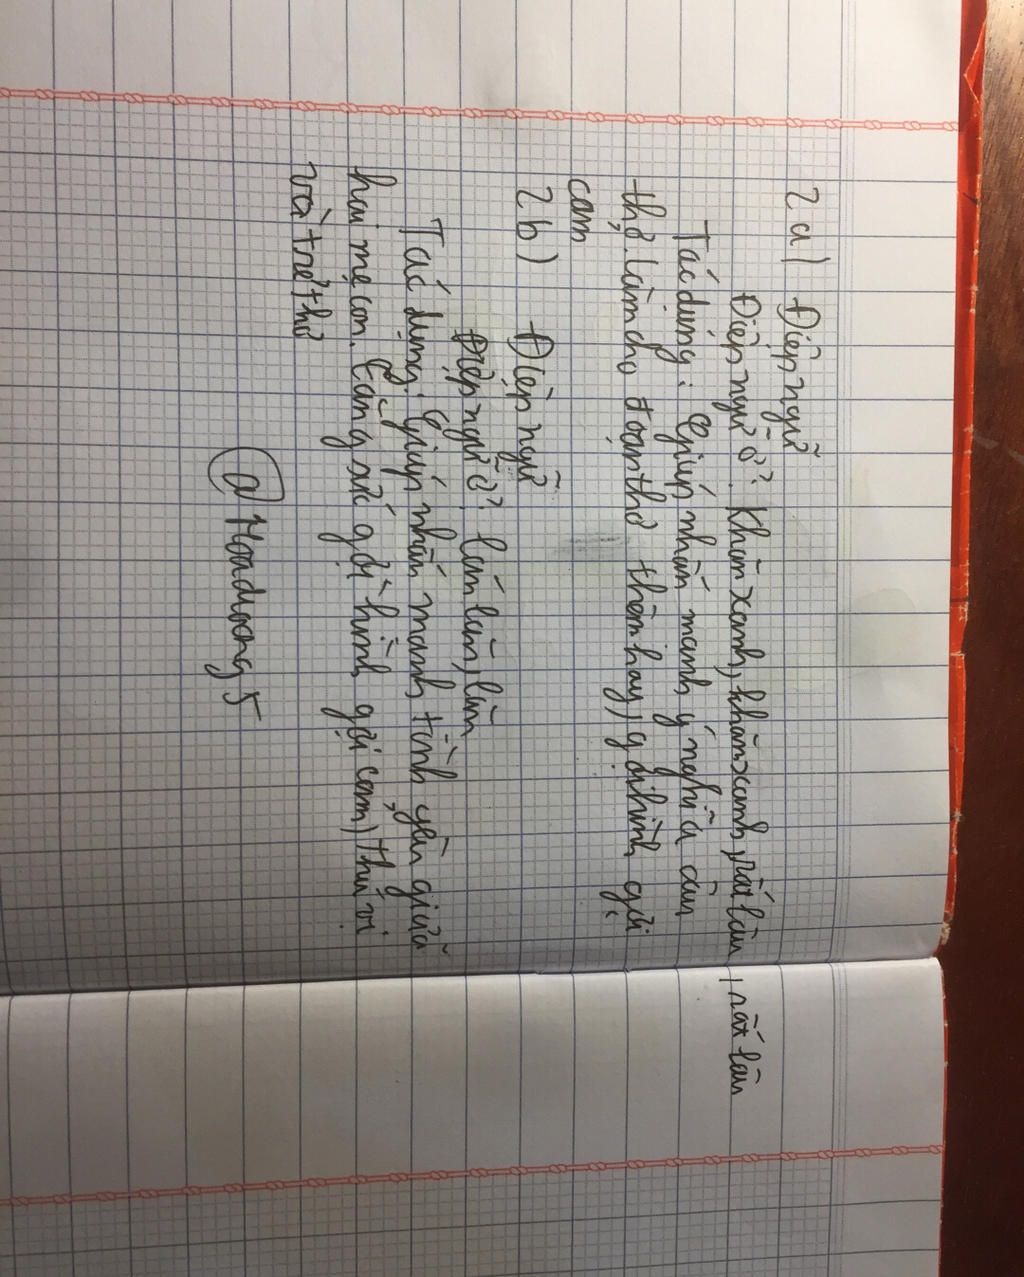 2a) Điệp ngữ
Điệp ngữ ở: Khăn xanh, khăn xanh, rất lâu, rất lâu
Tác dụng: Giúp nhấn mạnh ý nghĩa câu
thơ. Làm cho đoạn thơ thêm hay, gợi hình gợi
cảm
2b) Điệp ngữ
Điệp ngữ ở: lần lần, lần
Tác dụng: Giúp nhấn mạnh tình yêu giữa
hai mẹ con. Căng xúc gợi hình gợi cảm, thú vị
và trẻ thơ
@Hoaduong5